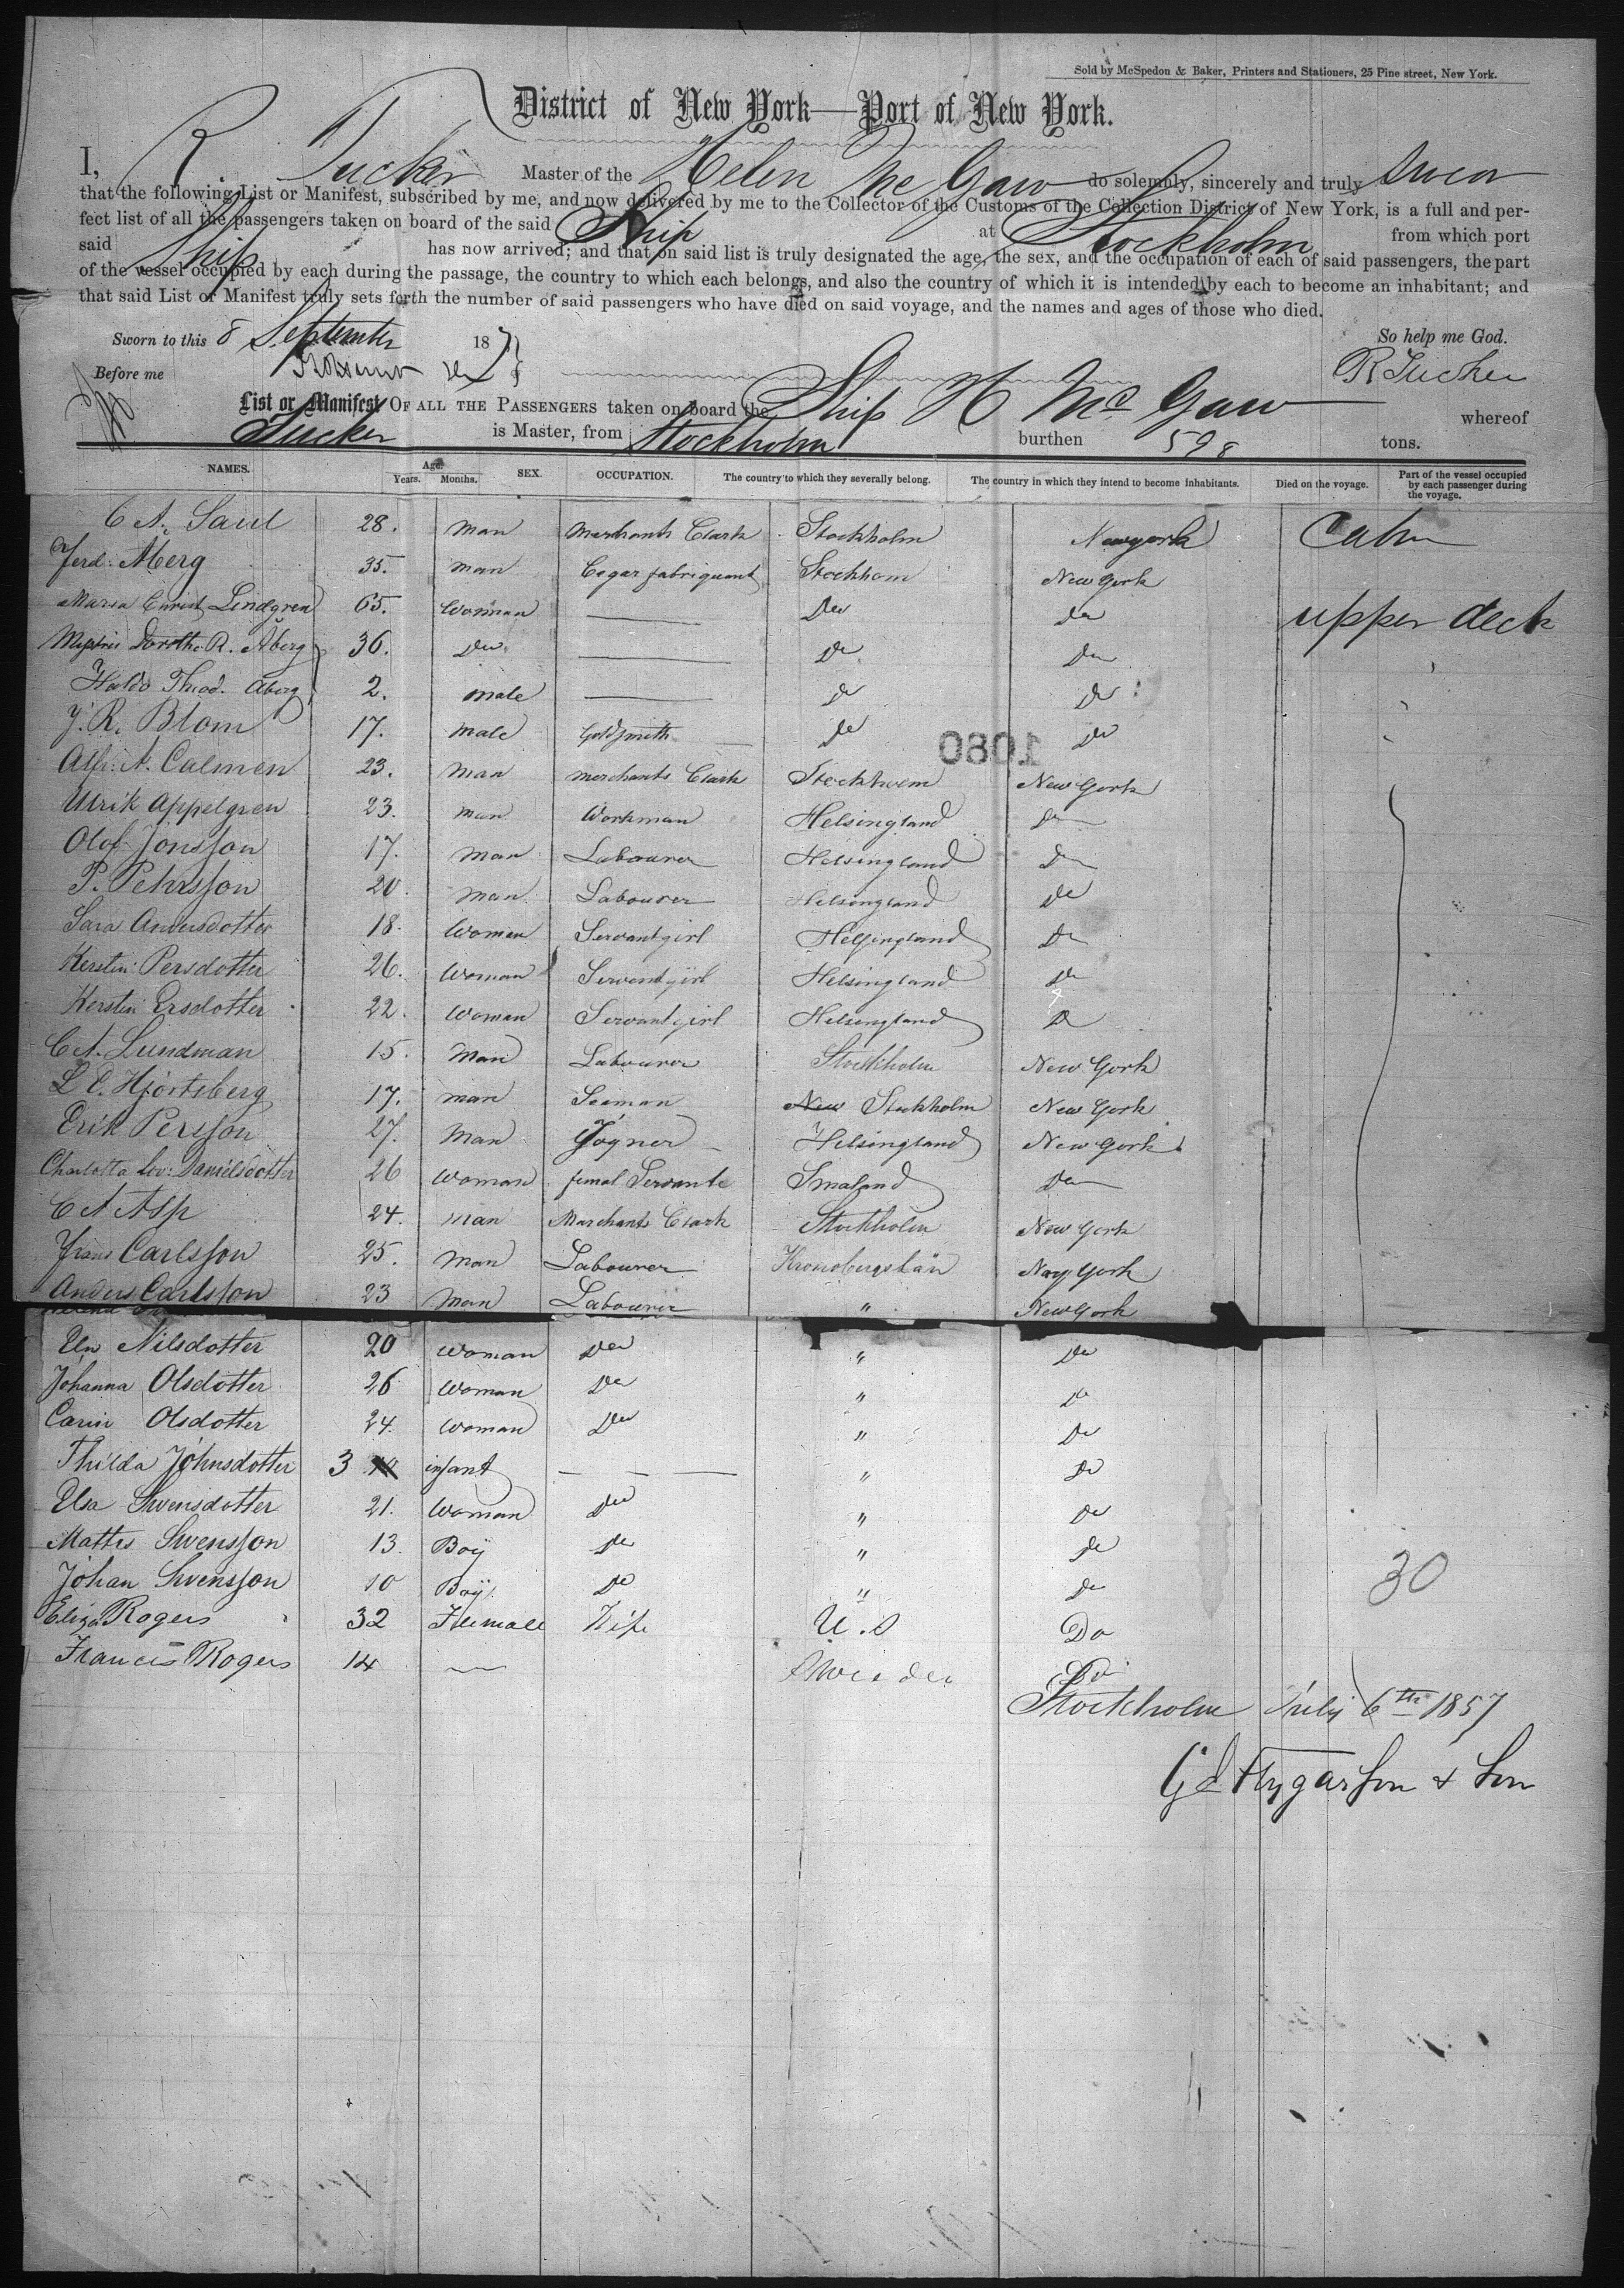 Sold by McSpedon & Baker, Printers and Stationers, 25 Pine street, New York.
District of New York—Port of New York.
I, R Tucker Master of the Helen Mc Gaw do solemnly, sincerely and truly swear
that the following List or Manifest, subscribed by me, and now delivered by me to the Collector of the Customs of the Collection District of New York, is a full and per-
fect list of all the passengers taken on board of the said Ship at Stockholm from which port
said Ship has now arrived; and that on said list is truly designated the age, the sex, and the occupation of each of said passengers, the part
of the vessel occupied by each during the passage, the country to which each belongs, and also the country of which it is intended by each to become an inhabitant; and
that said List or Manifest truly sets forth the number of said passengers who have died on said voyage, and the names and ages of those who died.
Sworn to this 8 September 187 So help me God.
Before me R Tucker
List or Manifest OF ALL THE PASSENGERS taken on board the Ship H Mc Gaw whereof
Tucker is Master, from Stockholm burthen 598 tons.
NAMES. Age. Years. Months. SEX. OCCUPATION. The country to which they severally belong. The country in which they intend to become inhabitants. Died on the voyage. Part of the vessel occupied by each passenger during the voyage.
C A. Saul 28. man Marchants Clark Stockholm Newyork Cabin
Ferd: Åberg 35. man Cegar fabriquant Stockhom New York
Maria Christ. Lindgren 65. Woman Do Do upper deck
Dorothe R. Åberg 36. Do Do Do
Theod. Åberg 2. male Do Do
J. R. Blom 17. Male Goldsmith Do Do
1080
Alfr. A. Calmen 23. Man merchants Clark Stockholm New York
Ulrik Appelgren 23. man Workman Helsingland Do
Olof Jonsson 17. man Labourer Helsingland Do
P. Pehrsson 20. man. Labourer Helsingland Do
Sara Andersdotter 18. Woman Servantgirl Helsingland Do
Kerstin Persdotter 26. Woman Servantgirl Helsingland Do
Kerstin Ersdotter 22. Woman Servantgirl Helsingland Do
C A. Lundman 15. Man Labourer Stockholm New York
L E. Hjortsberg 17. man Seaman New Stockholm New York
Erik Persson 27. Man Joyner Helsingland New York
Charlotta Lov: Danielsdotter 26 woman femal Servante Smaland Do
C A Asp 24. man Marchants Clark Stockholm New York
Frans Carlsson 25. Man Labourer Kronobergslän Nay York
Anders Carlsson 23 Man Labourer " New York
Eln Nilsdotter 20 Woman Do " Do
Johanna Olsdotter 26 Woman Do " Do
Carin Olsdotter 24. Woman Do " Do
Thilda Johnsdotter 3 infant " Do
Elsa Swensdotter 21. Woman Do " Do
Matts Swensson 13. Boy Do " Do
Johan Swensson 10 Boy Do " Do
30
Eliza Rogers 32 Female Wife U.S Do
Francis Rogers 14 Sweden Do
Stockholm July 6th 1857
& Son